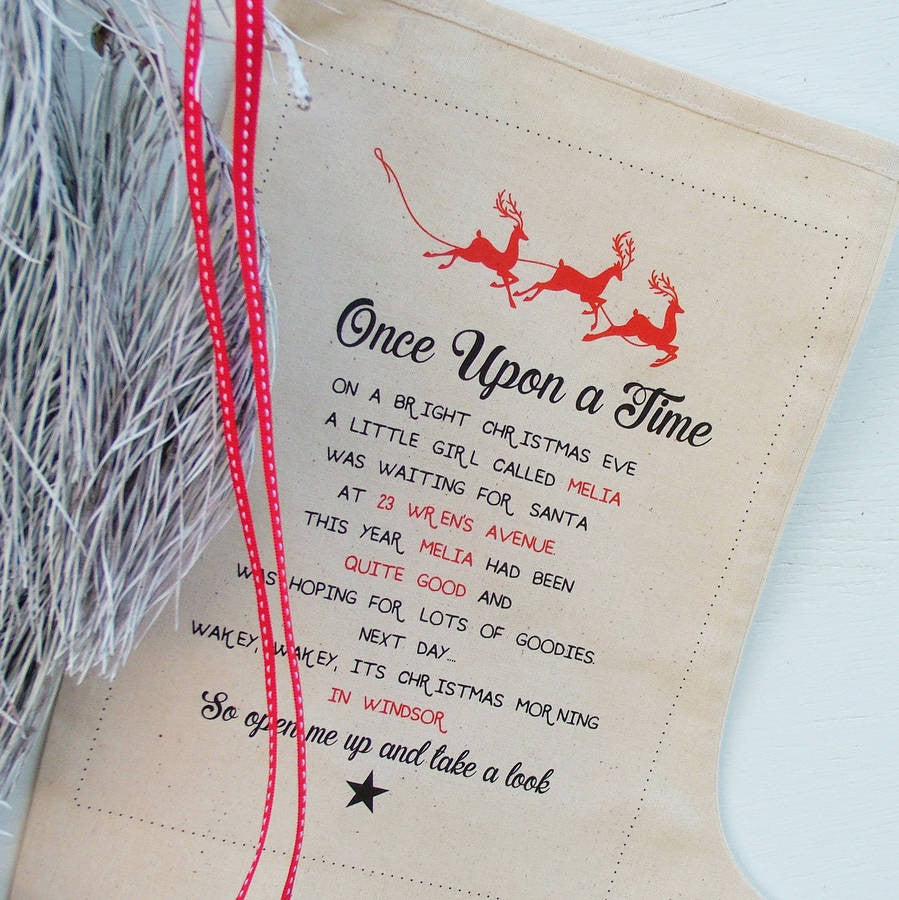 Once Upon a Time
ON A BRIGHT CHRISTMAS EVE
A LITTLE GIRL CALLED MELIA
WAS WAITING FOR SANTA
AT 23 WREN'S AVENUE.
THIS YEAR MELIA HAD BEEN
QUITE GOOD AND
WAS HOPING FOR LOTS OF GOODIES.
NEXT DAY....
WAKEY, WAKEY, ITS CHRISTMAS MORNING
IN WINDSOR
So open me up and take a look